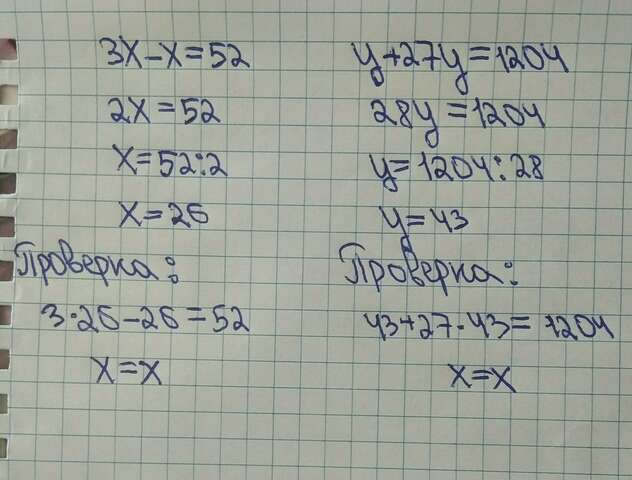 3x-x=52
2x=52
x=52:2
x=26
Проверка:
3·26-26=52
x=x
y+27y=1204
28y=1204
y=1204:28
y=43
Проверка:
43+27·43=1204
x=x